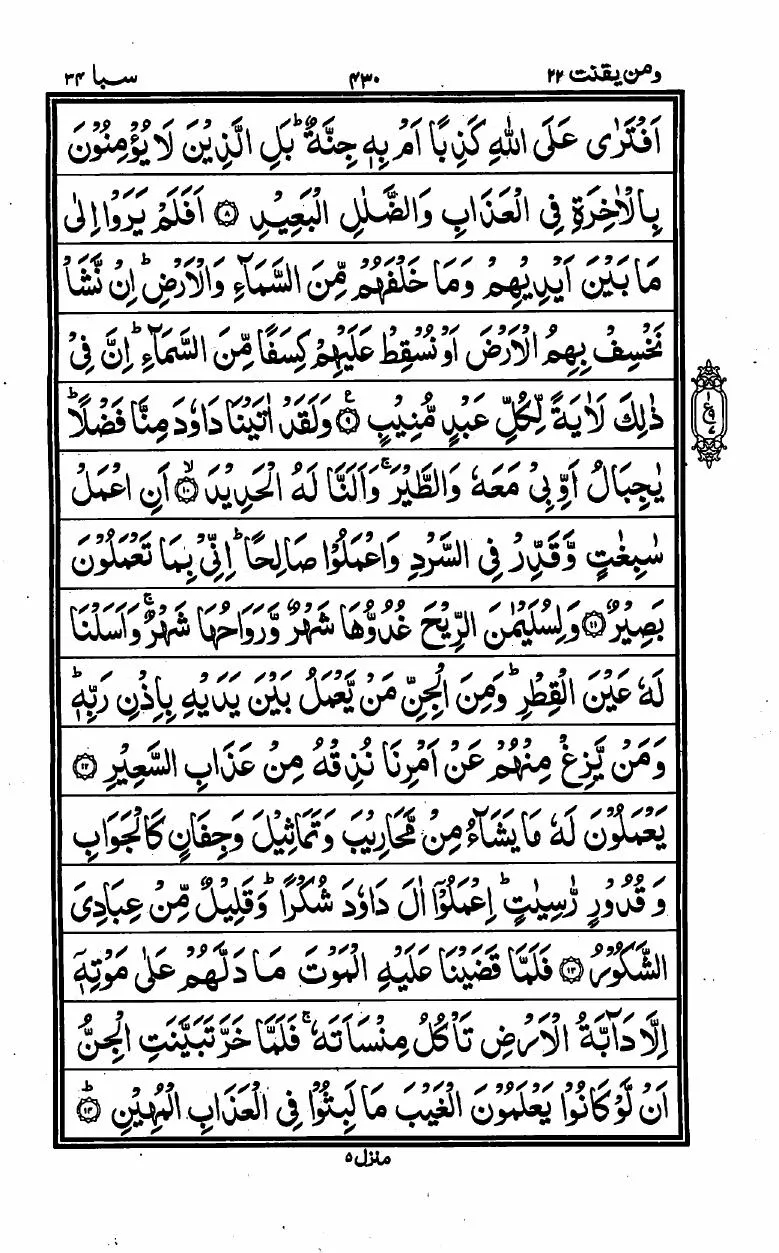 ومن یقنت ۲۲ ۴۳۰ سبا ۳۴
اَفْتَرٰى عَلَى اللّٰهِ كَذِبًا اَمْ بِهٖ جِنَّةٌ ؕ بَلِ الَّذِيْنَ لَا يُؤْمِنُوْنَ
بِالْاٰخِرَةِ فِى الْعَذَابِ وَالضَّلٰلِ الْبَعِيْدِ ۝۸ اَفَلَمْ يَرَوْا اِلٰى
مَا بَيْنَ اَيْدِيْهِمْ وَمَا خَلْفَهُمْ مِّنَ السَّمَآءِ وَالْاَرْضِ ؕ اِنْ نَّشَاْ
نَخْسِفْ بِهِمُ الْاَرْضَ اَوْ نُسْقِطْ عَلَيْهِمْ كِسَفًا مِّنَ السَّمَآءِ ؕ اِنَّ فِىْ
ذٰلِكَ لَاٰيَةً لِّكُلِّ عَبْدٍ مُّنِيْبٍ ۝۹ ع وَلَقَدْ اٰتَيْنَا دَاوٗدَ مِنَّا فَضْلًا ؕ
يٰجِبَالُ اَوِّبِىْ مَعَهٗ وَالطَّيْرَ ۚ وَاَلَنَّا لَهُ الْحَدِيْدَ ۝۱۰ ۙ اَنِ اعْمَلْ
سٰبِغٰتٍ وَّقَدِّرْ فِى السَّرْدِ وَاعْمَلُوْا صَالِحًا ؕ اِنِّىْ بِمَا تَعْمَلُوْنَ
بَصِيْرٌ ۝۱۱ وَلِسُلَيْمٰنَ الرِّيْحَ غُدُوُّهَا شَهْرٌ وَّرَوَاحُهَا شَهْرٌ ۚ وَاَسَلْنَا
لَهٗ عَيْنَ الْقِطْرِ ؕ وَمِنَ الْجِنِّ مَنْ يَّعْمَلُ بَيْنَ يَدَيْهِ بِاِذْنِ رَبِّهٖ ؕ
وَمَنْ يَّزِغْ مِنْهُمْ عَنْ اَمْرِنَا نُذِقْهُ مِنْ عَذَابِ السَّعِيْرِ ۝۱۲
يَعْمَلُوْنَ لَهٗ مَا يَشَآءُ مِنْ مَّحَارِيْبَ وَتَمَاثِيْلَ وَجِفَانٍ كَالْجَوَابِ
وَقُدُوْرٍ رّٰسِيٰتٍ ؕ اِعْمَلُوْۤا اٰلَ دَاوٗدَ شُكْرًا ؕ وَقَلِيْلٌ مِّنْ عِبَادِىَ
الشَّكُوْرُ ۝۱۳ فَلَمَّا قَضَيْنَا عَلَيْهِ الْمَوْتَ مَا دَلَّهُمْ عَلٰى مَوْتِهٖۤ
اِلَّا دَآبَّةُ الْاَرْضِ تَاْكُلُ مِنْسَاَتَهٗ ۚ فَلَمَّا خَرَّ تَبَيَّنَتِ الْجِنُّ
اَنْ لَّوْ كَانُوْا يَعْلَمُوْنَ الْغَيْبَ مَا لَبِثُوْا فِى الْعَذَابِ الْمُهِيْنِ ۝۱۴ ؕ
۱
ع۹
۷
منزل ۵